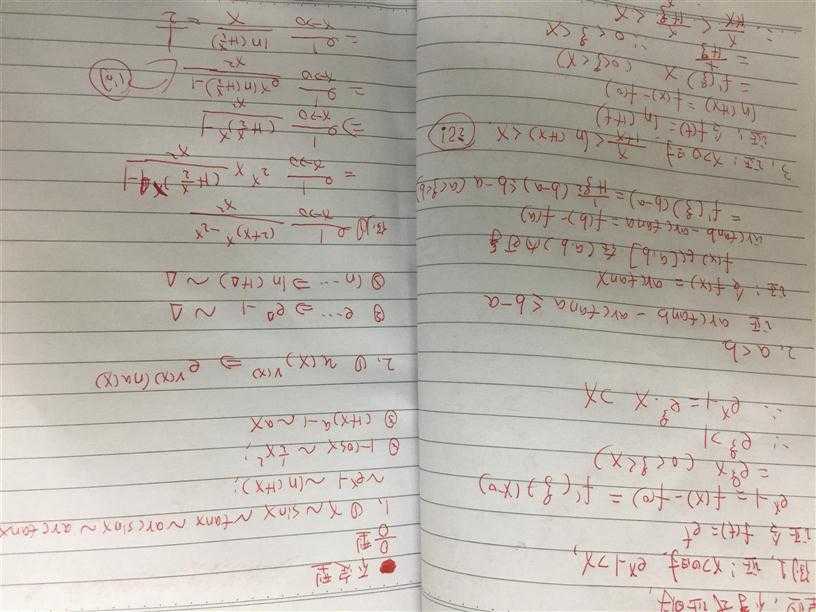 例1 x>0时, 证: eˣ-1>x,
证: 令 f(t)=eᵗ
eˣ-1=f(x)-f(0)=f'(ξ)(x-0)
=e^ξ·x (0<ξ<x)
∵ e^ξ>1
∴ eˣ-1=e^ξ·x >x
2. a<b
证 arctanb-arctana≤b-a
证: 令 f(x)=arctanx
f(x)∈[a,b] 在(a,b)内可导
arctanb-arctana=f(b)-f(a)
=f'(ξ)(b-a)=1/(1+ξ²)(b-a)≤b-a (a<ξ<b)
3. 证: x>0时 x/(1+x)<ln(1+x)<x.
证: 令 f(t)=ln(1+t)
ln(1+x)=f(x)-f(0)
=f'(ξ)x (0<ξ<x)
=x/(1+ξ) ∵0<ξ<x
∴ x/(1+x)<x/(1+ξ)<x
P23
不定型
0/0型
1. ① x~sinx~tanx~arcsinx~arctanx
~eˣ-1~ln(1+x);
② 1-cosx~½x²;
③ (1+x)ᵃ-1~ax
2. ① u(x)^v(x) ⇒ e^(v(x)lnu(x))
② e… ⇒ e^Δ-1 ~Δ
③ ln… ⇒ ln(1+Δ)~Δ
例1① lim x→0 ((2+x)ˣ-2ˣ)/x²
=lim x→0 2ˣ×((1+x/2)ˣ-1)/x²
⇒lim x→0 ((1+x/2)ˣ-1)/x²
=lim x→0 (e^(xln(1+x/2))-1)/x²
=lim x→0 ln(1+x/2)/x=1/2